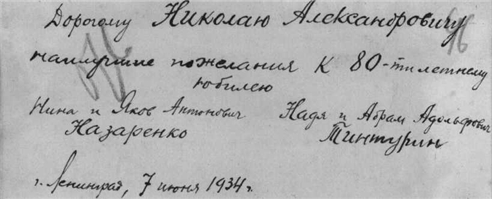 Дорогому Николаю Александровичу
наилучшие пожелания к 80-тилетнему
юбилею
Нина и Яков Антонович Надя и Абрам Адольфович
Назаренко Тинтурин
г. Ленинград, 7 июня 1934 г.